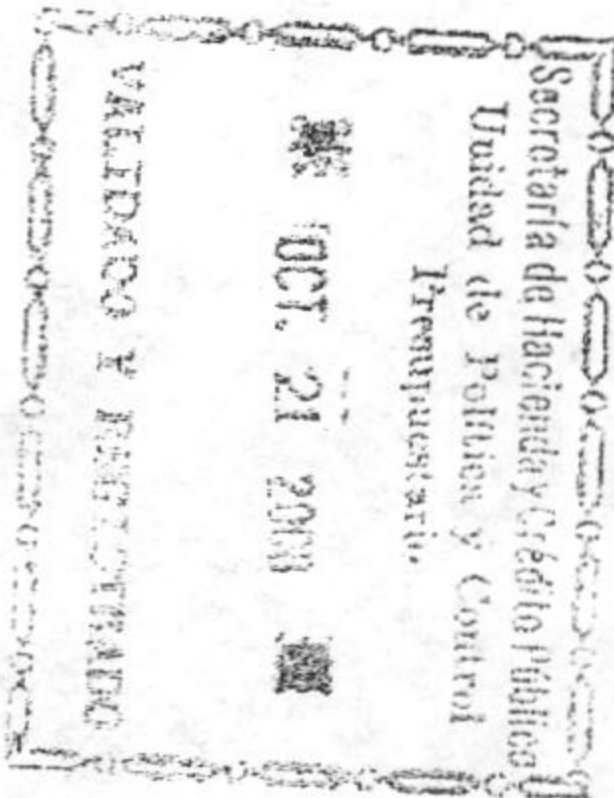 Secretaría de Hacienda y Crédito Público
Unidad de Política y Control
Presupuestario.
OCT. 21 200
VALIDADO Y REGISTRADO